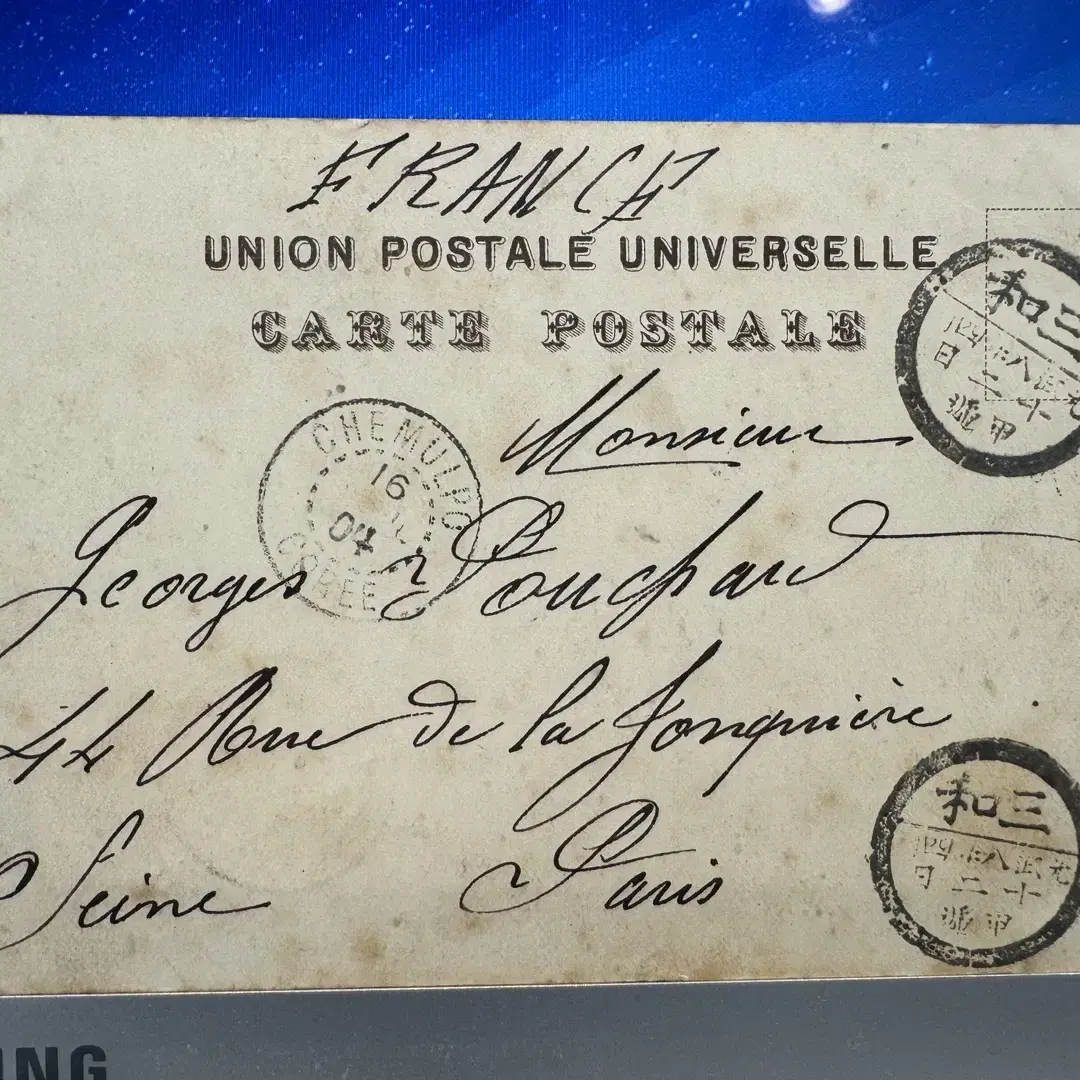 FRANCE
UNION POSTALE UNIVERSELLE
CARTE POSTALE
三和
光武八年四
十二日
甲號
CHEMULPO
16
04
COREE
Monsieur
Georges Pouchard
44 Rue de la Jonquière
Seine Paris
三和
光武八年四
十二日
甲號
NG